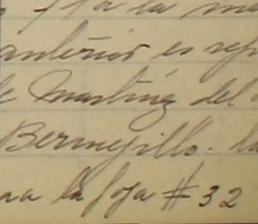 a la
anterior es
Martínez del
Bermejillo. la
la foja # 32